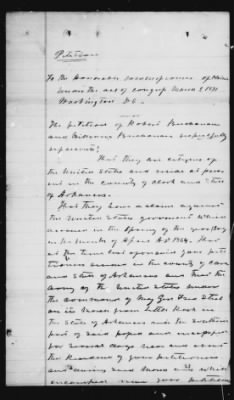 Petition
To the Honorable Commissioners of Claims
under the act of Congress March 3, 1871
Washington D.C.
The petition of Robert Buchanan
and William Buchanan respectfully
represents:
That they are citizens of
the United States and reside at pres-
ent in the county of Clark and State
of Arkansas.
That they have a claim against
the United States government which
accrued in the Spring of the year 1864
in the months of April &c 1864. That
at the time hereof your peti-
tioners resided in the county of Clark
and State of Arkansas and that the
Army of the United States under
the command of Maj Gen Fred Steel
on its march from Little Rock in
the State of Arkansas and the southern
part of said state and encamped
for several days near and around
the residence of your petitioners
and during said time and while
encamped near your petitioners